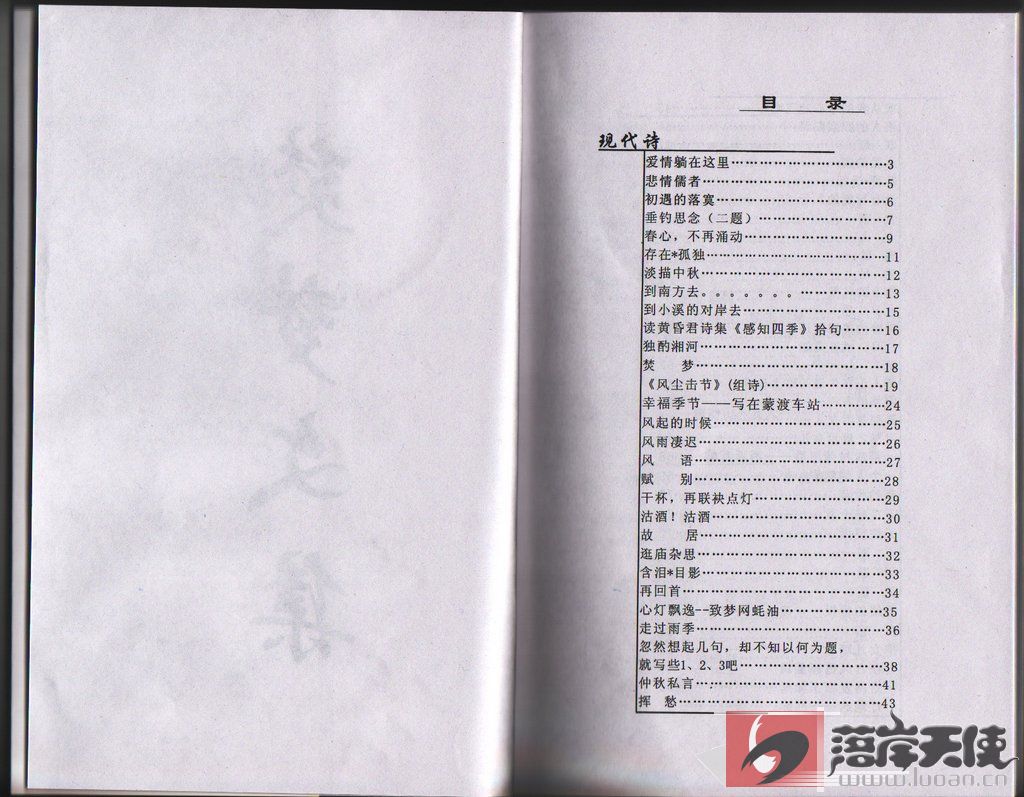 目 录
现代诗
爱情躺在这里……………………………3
悲情儒者…………………………………5
初遇的落寞………………………………6
垂钓思念（二题）………………………7
春心，不再涌动…………………………9
存在*孤独………………………………11
淡描中秋…………………………………12
到南方去。。。。。。。………………13
到小溪的对岸去…………………………15
读黄昏君诗集《感知四季》拾句………16
独酌湘河…………………………………17
焚 梦……………………………………18
《风尘击节》(组诗)……………………19
幸福季节——写在蒙渡车站……………24
风起的时候………………………………25
风雨凄迟…………………………………26
风 语……………………………………27
赋 别……………………………………28
干杯，再联袂点灯………………………29
沽酒！沽酒………………………………30
故 居……………………………………31
逛庙杂思…………………………………32
含泪*目影………………………………33
再回首……………………………………34
心灯飘逸--致梦网蚝油…………………35
走过雨季…………………………………36
忽然想起几句，却不知以何为题，
就写些1、2、3吧………………………38
仲秋私言…………………………………41
挥 愁……………………………………43
落岸天使
www.luoan.cn